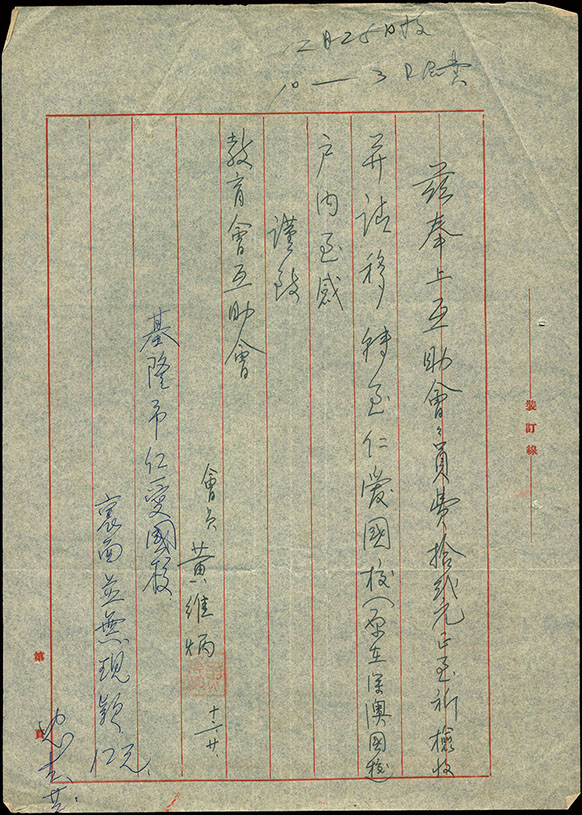 12月25日收
茲奉上互助會會員費拾貳元正至祈檢收
并請移轉至仁愛國校(原在深澳國校)
戶內至感
謹致
教育會互助會
會員 黃維炳
十二、廿、
基隆市仁愛國校
裏面並無現款12元、
裝訂線
第 頁